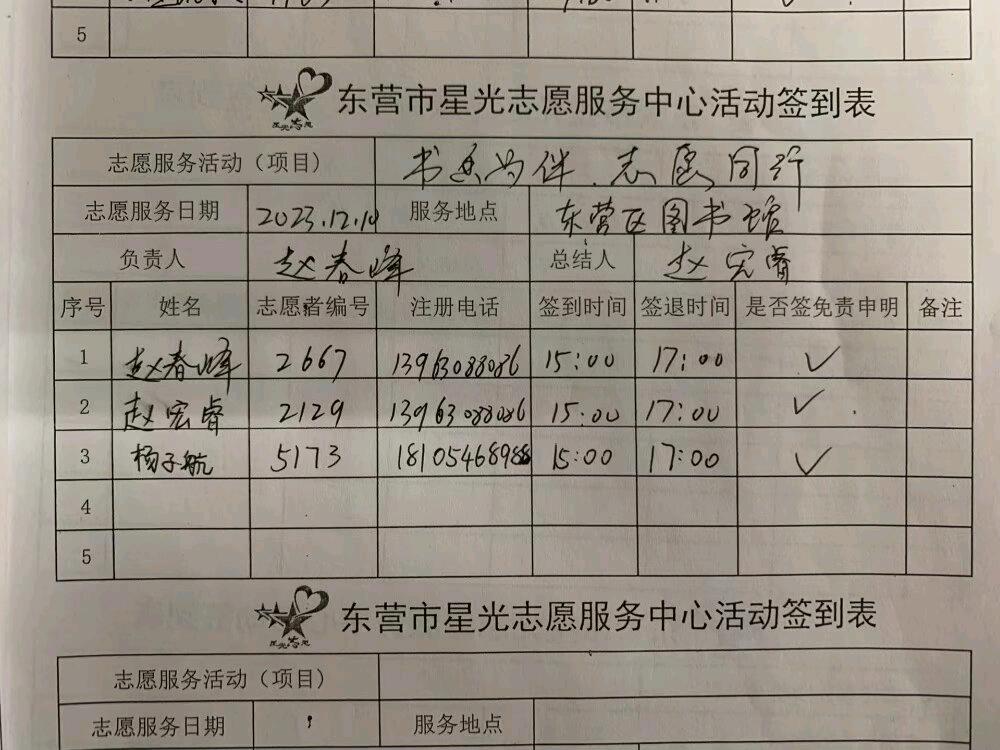 5
星光志愿
东营市星光志愿服务中心活动签到表
志愿服务活动（项目） 书香为伴、志愿同行
志愿服务日期 2023.12.10 服务地点 东营区图书馆
负责人 赵春峰 总结人 赵宏睿
序号 姓名 志愿者编号 注册电话 签到时间 签退时间 是否签免责申明 备注
1 赵春峰 2667 13963088086 15:00 17:00 ✓
2 赵宏睿 2129 13963088086 15:00 17:00 ✓
3 杨子航 5173 18105468988 15:00 17:00 ✓
4
5
星光志愿
东营市星光志愿服务中心活动签到表
志愿服务活动（项目）
志愿服务日期 服务地点